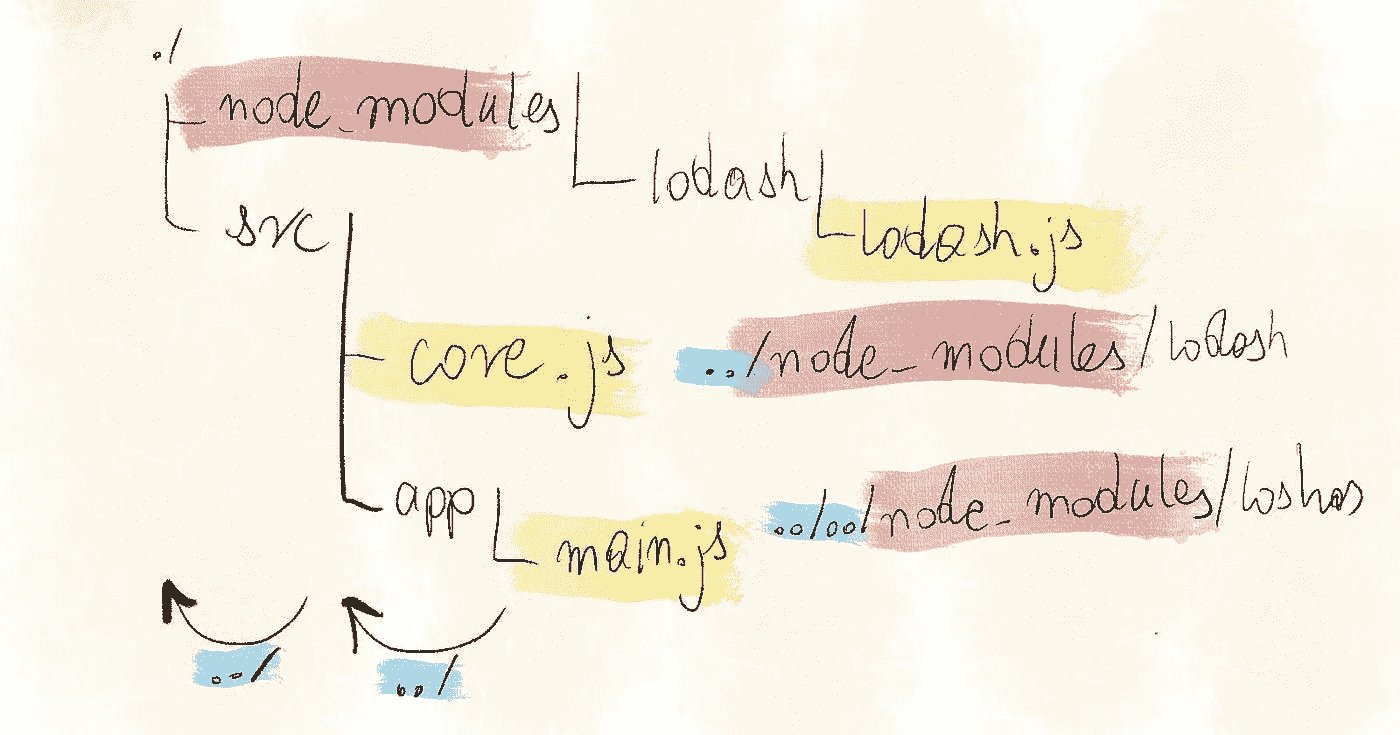 ./
node_modules
lodash
lodash.js
src
core.js ../node_modules/lodash
app
main.js ../../node_modules/loshos
../ ../